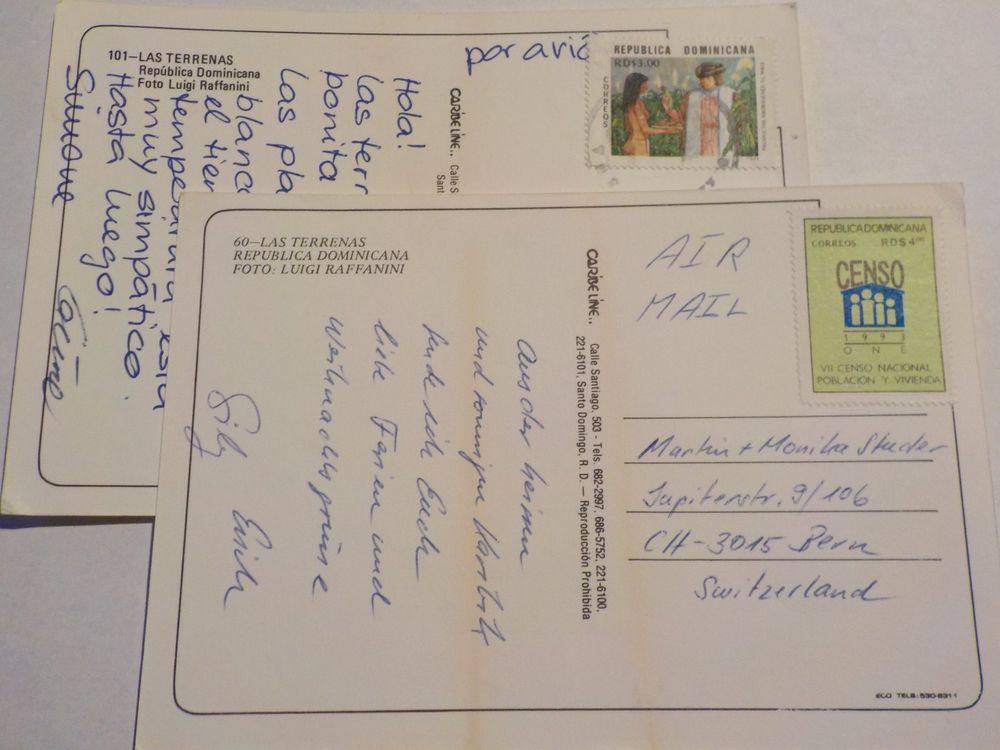 101–LAS TERRENAS
República Dominicana
Foto Luigi Raffanini
por avió
REPUBLICA DOMINICANA
RD$3.00
CORREOS
Hola!
Las terr
bonita
Las pla
blanc
el tie
temperatura esta
muy simpático.
Hasta luego!
Simone
CARIBE LINE..
Calle S
Santo
60–LAS TERRENAS
REPUBLICA DOMINICANA
FOTO: LUIGI RAFFANINI
Aus der
und sonnigen Karibik
sende ich Euch
liebe Ferien und
Weihnachtsgrüsse
CARIBE LINE.. Calle Santiago, 503 - Tels. 682-2997, 686-5752, 221-6100,
221-6101, Santo Domingo, R. D. — Reproducción Prohibida
AIR
MAIL
REPUBLICA DOMINICANA
CORREOS RD$ 4.00
CENSO
1993
ONE
VII CENSO NACIONAL
POBLACION Y VIVIENDA
Martin + Monika Studer
Jupiterstr. 9/106
CH-3015 Bern
Switzerland
ECO TELS: 530-6311